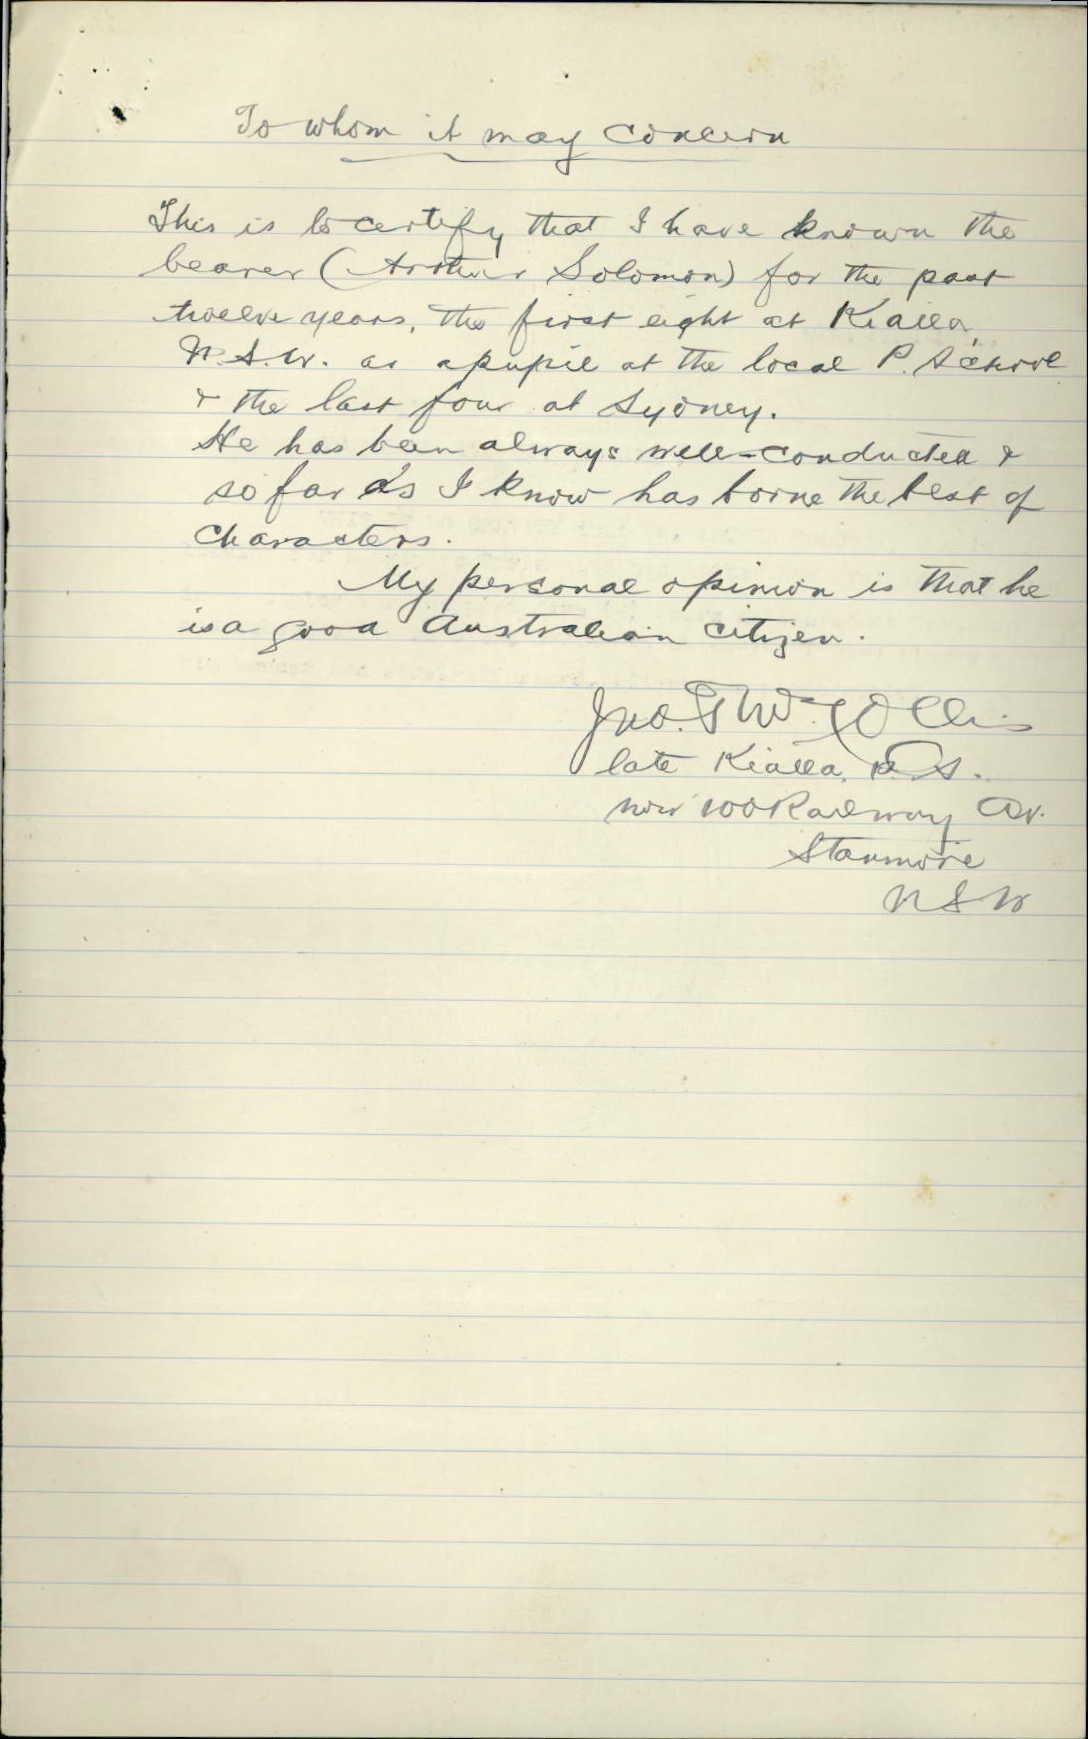 To whom it may concern
This is to certify that I have known the
bearer (Arthur Solomon) for the past
twelve years, the first eight at Kialla
N.S.W. as a pupil at the local P. School
& the last four at Sydney.
He has been always well-conducted &
so far as I know has borne the best of
characters.
My personal opinion is that he
is a good Australian citizen.
Jno.
late Kialla P.S.
now 100 Railway Av.
Stanmore
NSW